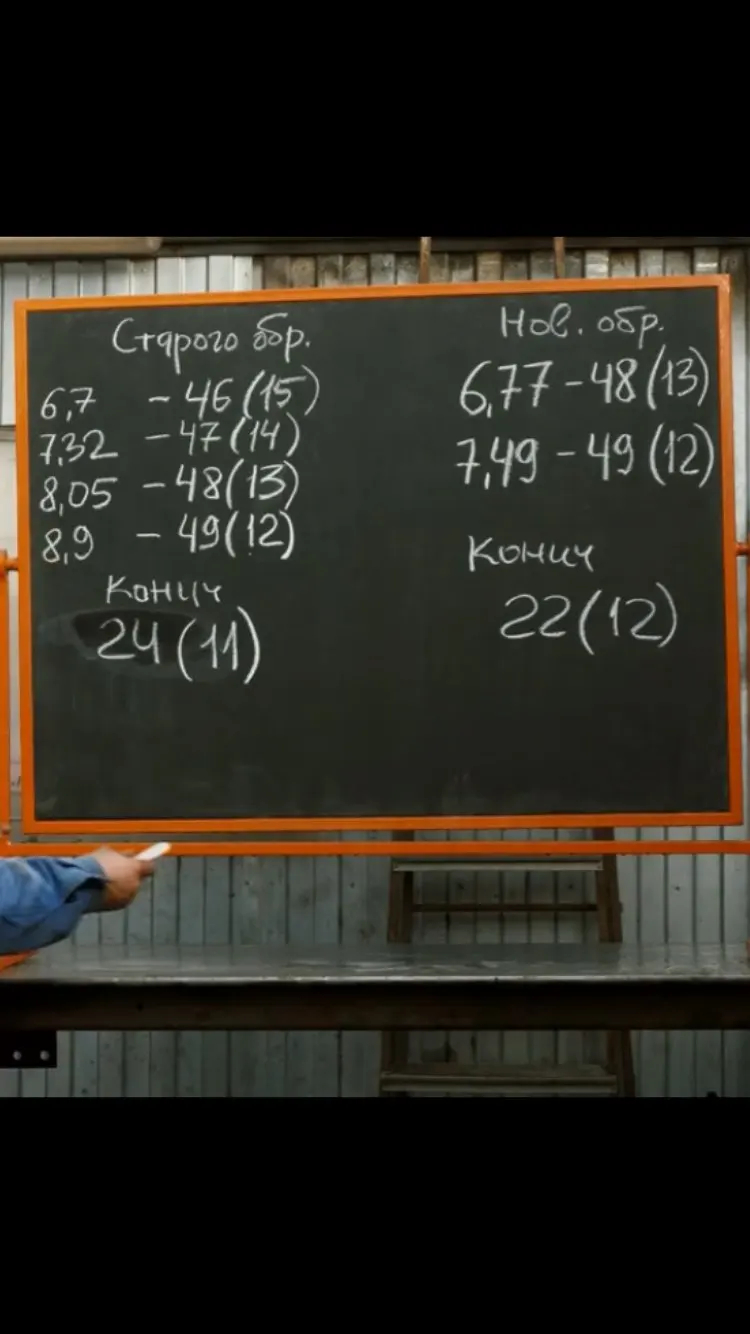 Старого обр.
6,7 - 46 (15)
7,32 - 47 (14)
8,05 - 48 (13)
8,9 - 49 (12)
Конич
24 (11)
Нов. обр.
6,77 - 48 (13)
7,49 - 49 (12)
Конич
22 (12)